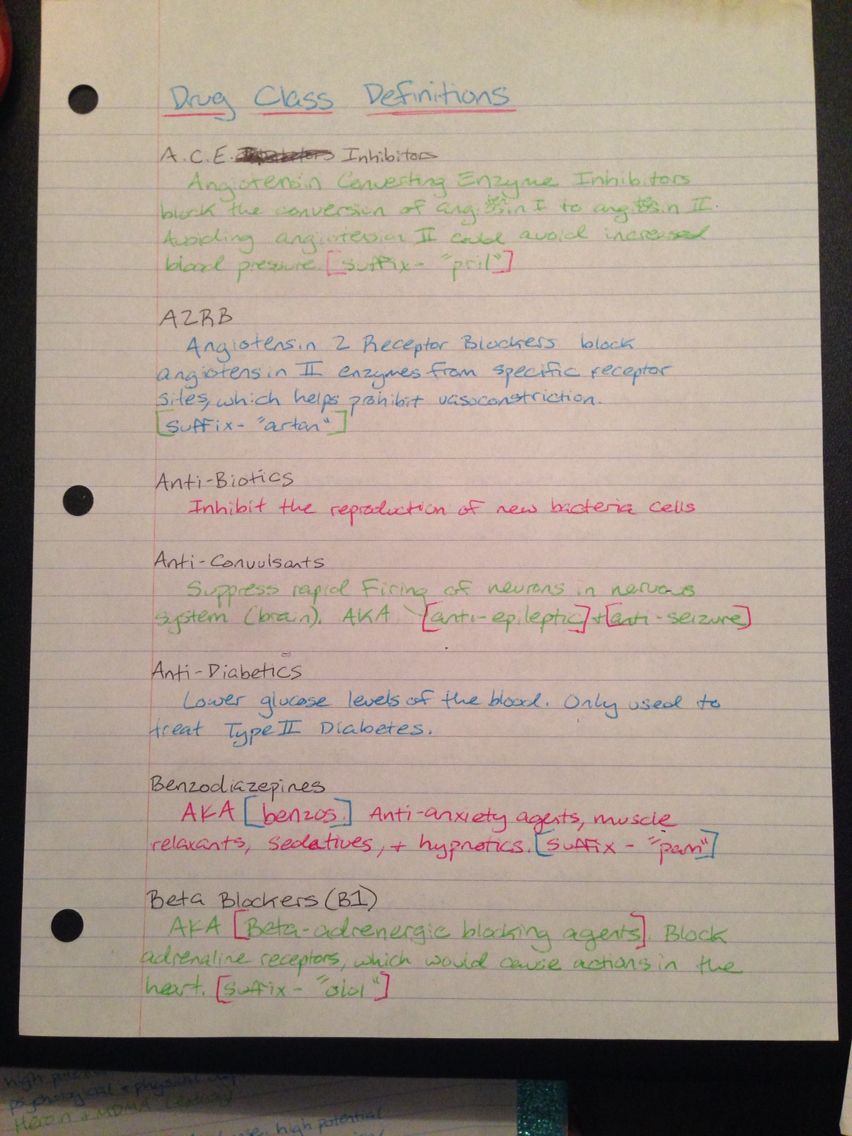 Drug Class Definitions
A.C.E. Inhibitors
Angiotensin Converting Enzyme Inhibitors
block the conversion of angiotensin I to angiotensin II.
Avoiding angiotensin II could avoid increased
blood pressure. [suffix- "pril"]
A2RB
Angiotensin 2 Receptor Blockers block
angiotensin II enzymes from specific receptor
sites, which helps prohibit vasoconstriction.
[suffix- "artan"]
Anti-Biotics
Inhibit the reproduction of new bacteria cells
Anti-Convulsants
Suppress rapid firing of neurons in nervous
system (brain). AKA [anti-epileptic] + [anti-seizure]
Anti-Diabetics
Lower glucose levels of the blood. Only used to
treat Type II Diabetes.
Benzodiazepines
AKA [benzos.] Anti-anxiety agents, muscle
relaxants, sedatives, + hypnotics. [suffix - "pam"]
Beta Blockers (B1)
AKA [Beta-adrenergic blocking agents]. Block
adrenaline receptors, which would cause actions in the
heart. [suffix - "olol"]
high
psychological + physical
Heroin + MDMA
high potential